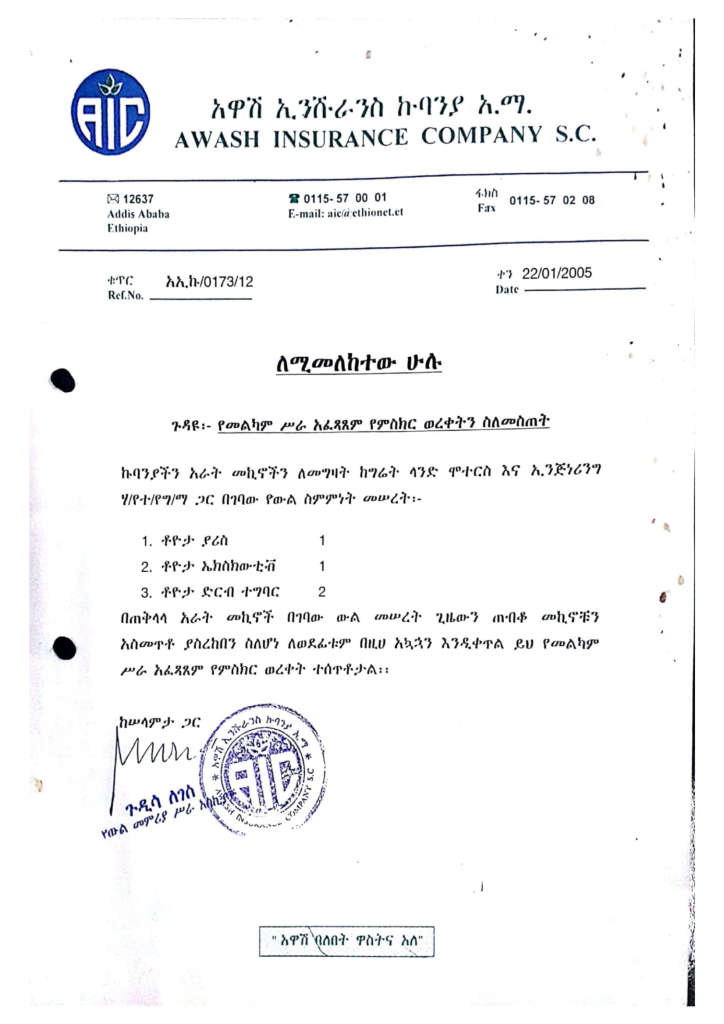 AIC
አዋሽ ኢንሹራንስ ኩባንያ አ.ማ.
AWASH INSURANCE COMPANY S.C.
12637
Addis Ababa
Ethiopia
0115- 57 00 01
E-mail: aic@ethionet.et
ፋክስ
Fax 0115- 57 02 08
ቁጥር አኢኩ/0173/12
Ref.No.
ቀን 22/01/2005
Date
ለሚመለከተው ሁሉ
ጉዳዩ፡- የመልካም ሥራ አፈጻጸም የምስክር ወረቀትን ስለመስጠት
ኩባንያችን አራት መኪኖችን ለመግዛት ከግሬት ላንድ ሞተርስ እና ኢንጅነሪንግ
ሃ/የተ/የግ/ማ ጋር በገባው የውል ስምምነት መሠረት፡-
1. ቶዮታ ያሪስ 1
2. ቶዮታ ኤክስክውቲቭ 1
3. ቶዮታ ድርብ ተግባር 2
በጠቅላላ አራት መኪኖች በገባው ውል መሠረት ጊዜውን ጠብቆ መኪኖቹን
አስመጥቶ ያስረከበን ስለሆነ ለወደፊቱም በዚህ አኳኋን እንዲቀጥል ይህ የመልካም
ሥራ አፈጻጸም የምስክር ወረቀት ተሰጥቶታል፡፡
ከሠላምታ ጋር
ጉዲሳ ለገሰ
የውል መምሪያ ሥራ
አዋሽ ኢንሹራንስ ኩባንያ አ.ማ
AIC
AWASH INSURANCE COMPANY S.C
" አዋሽ ባለበት ዋስትና አለ"